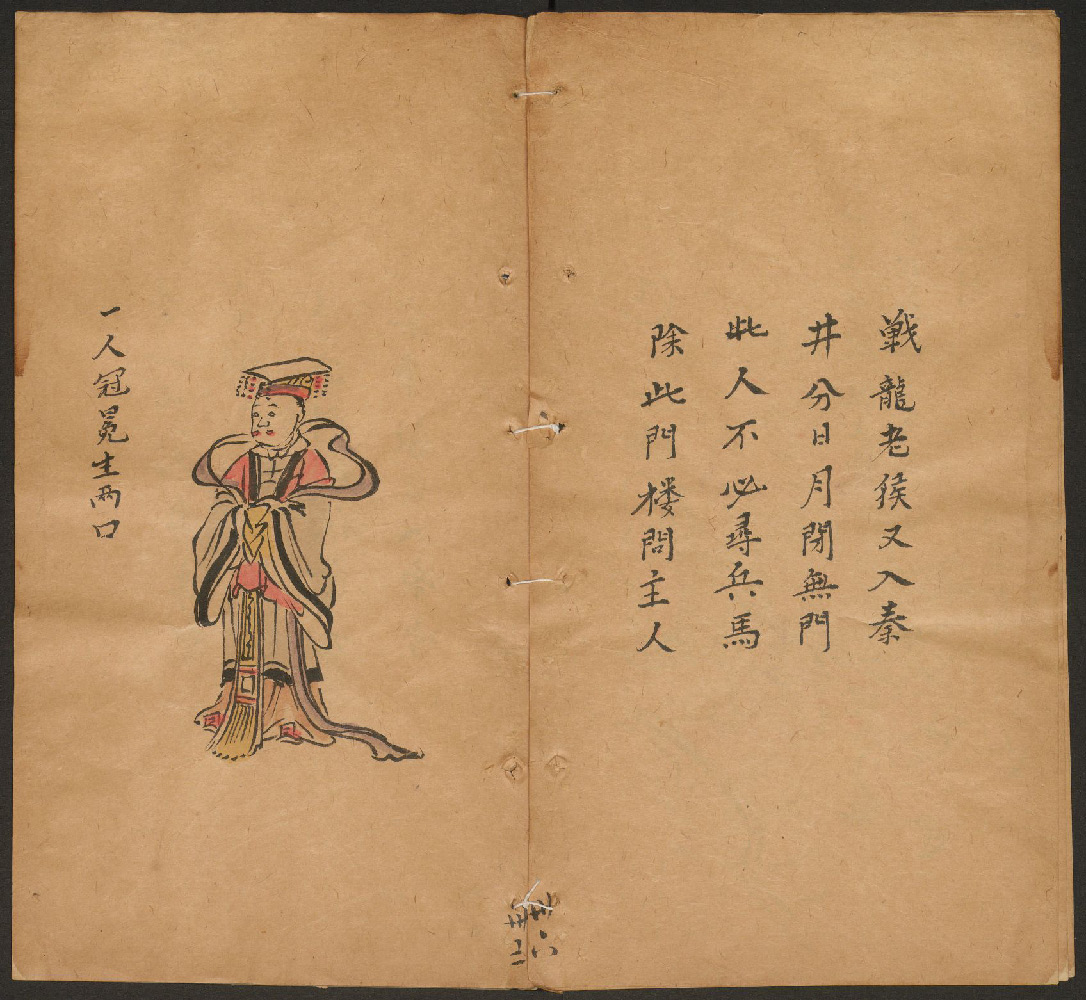 戦龍老猴又入秦
井分日月閉無門
此人不必尋兵馬
除此門楼問主人
一人冠冕生两口
卅六
卅二